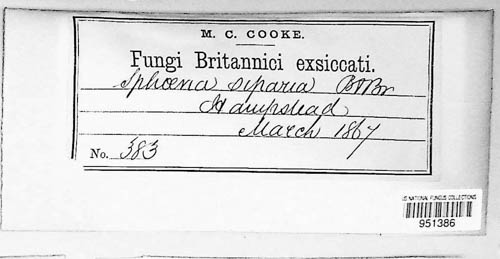 M. C. COOKE.
Fungi Britannici exsiccati.
Sphæria siparia B&Br
Hampstead
March 1867
No. 383
US NATIONAL FUNGUS COLLECTIONS
951386